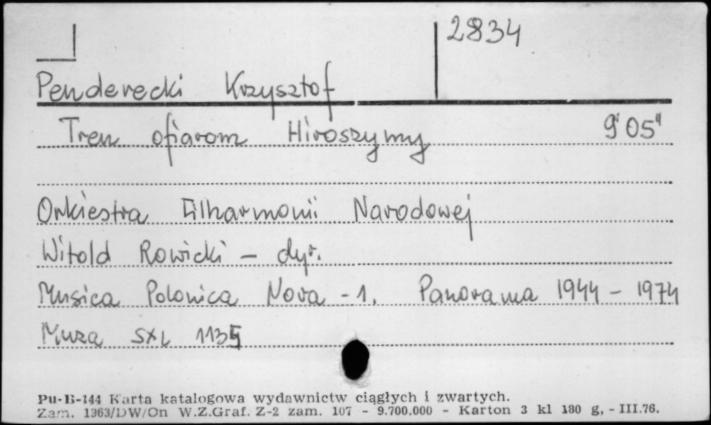 2834
Penderecki Krzysztof
Tren ofiarom Hiroszymy 9'05"
Orkiestra Filharmonii Narodowej
Witold Rowicki - dyr.
Musica Polonica Nova - 1. Panorama 1944 - 1974
Muza SXL 1135
Pu-B-144 Karta katalogowa wydawnictw ciągłych i zwartych.
Zam. 1363/DW/On W.Z.Graf. Z-2 zam. 107 - 9.700.000 - Karton 3 kl 180 g, - III.76.